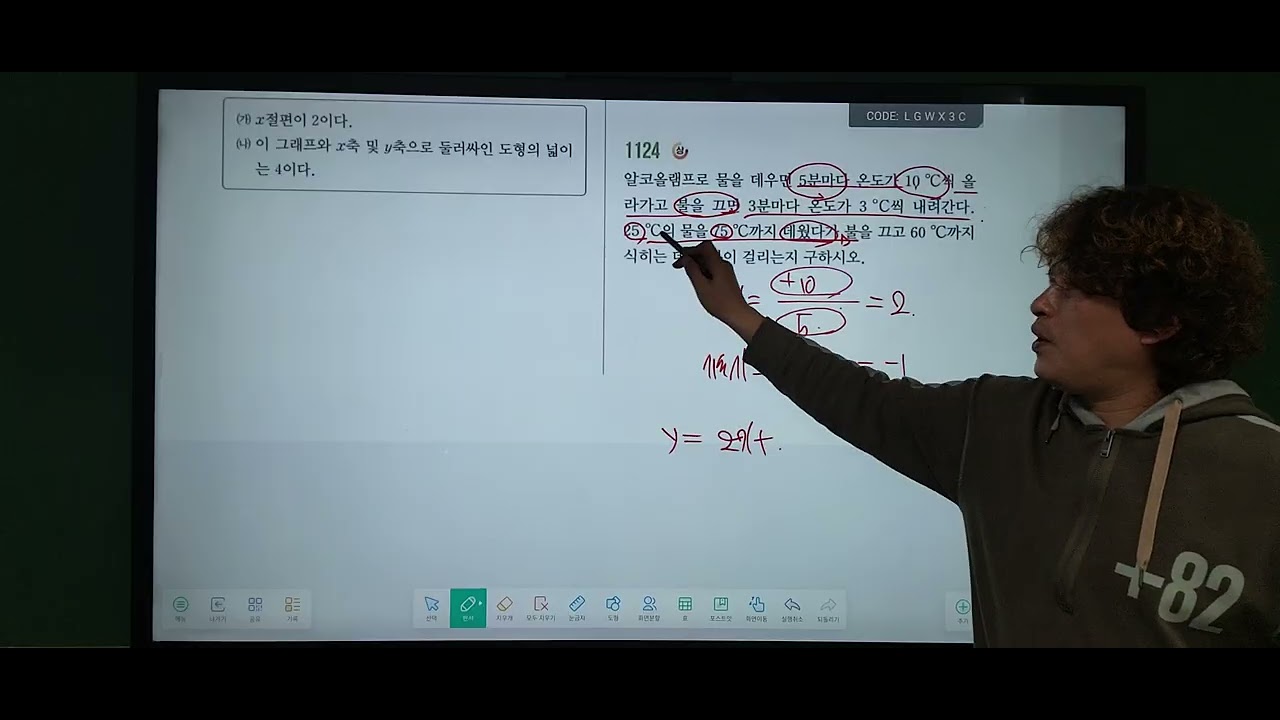 ㈎ x절편이 2이다.
㈏ 이 그래프와 x축 및 y축으로 둘러싸인 도형의 넓이
는 4이다.
CODE: L G W X 3 C
1124 상
알코올램프로 물을 데우면 5분마다 온도가 10 ℃씩 올
라가고 불을 끄면 3분마다 온도가 3 ℃씩 내려간다.
25 ℃의 물을 75 ℃까지 데웠다가 불을 끄고 60 ℃까지
식히는 이 걸리는지 구하시오.
= +10 / 5 = 2
= -1
y = 2x +
메뉴 나가기 공유 기록 선택 판서 지우개 모두 지우기 눈금자 도형 화면분할 표 포스트잇 화면이동 실행취소 되돌리기 추가
+82